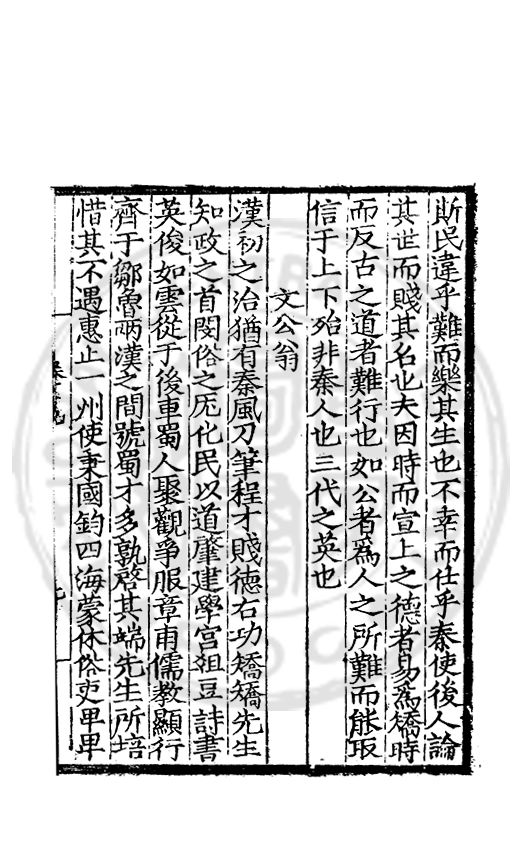 斯民違乎難而樂其生也不幸而仕乎秦使後人論
其世而賤其名也夫因時而宣上之德者易為矯時
而反古之道者難行也如公者為人之所難而能取
信于上下殆非秦人也三代之英也
文公翁
漢初之治猶有秦風刀筆程才賤德右功矯矯先生
知政之首閔俗之厖化民以道肇建學宮俎豆詩書
英俊如雲從于後車蜀人聚觀爭服章甫儒教顯行
齊于鄒魯兩漢之間號蜀才多孰啓其端先生所培
惜其不遇惠止一州使秉國鈞四海蒙休俗吏卑卑